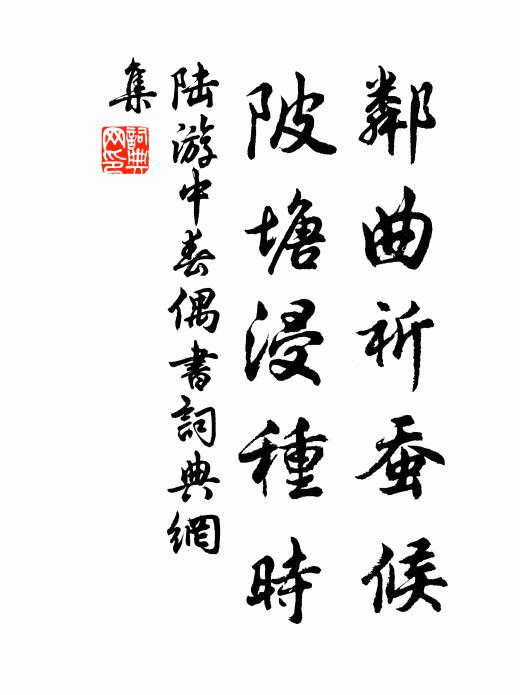 鄰曲祈蚕候
陂塘浸種時
陆游中春偶書詞典網
集
詞典
网印